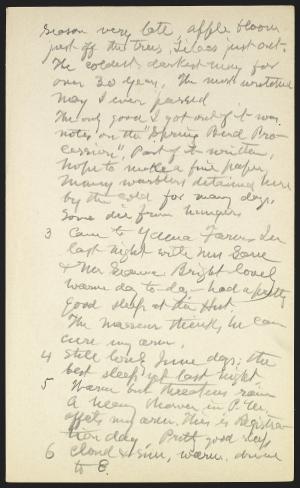 Season very late, apple bloom
just off the trees, Lilacs just out.
The coldest darkest May for
over 30 years. The most wretched
May I ever passed
The only good I got out of it was
notes on the "Spring Bird Pro-
cession", Part of it written,
hope to make a fine paper,
Many warblers detained here
by the cold for many days,
Some die from hunger
3 Came to Yama Farms Inn
last night with Mrs
& Mr Bright lovely
warm day to-day - had a pretty
good sleep at the Hut.
The masseur thinks he can
cure my arm.
4 Still lovely June days; the
best sleep yet last night
5 Warm but threatens rain
A heavy shower in P.M.
affects my arm. This is Registra-
tion day Pretty good sleep
6 Cloud & sun, warm, drive
to E.